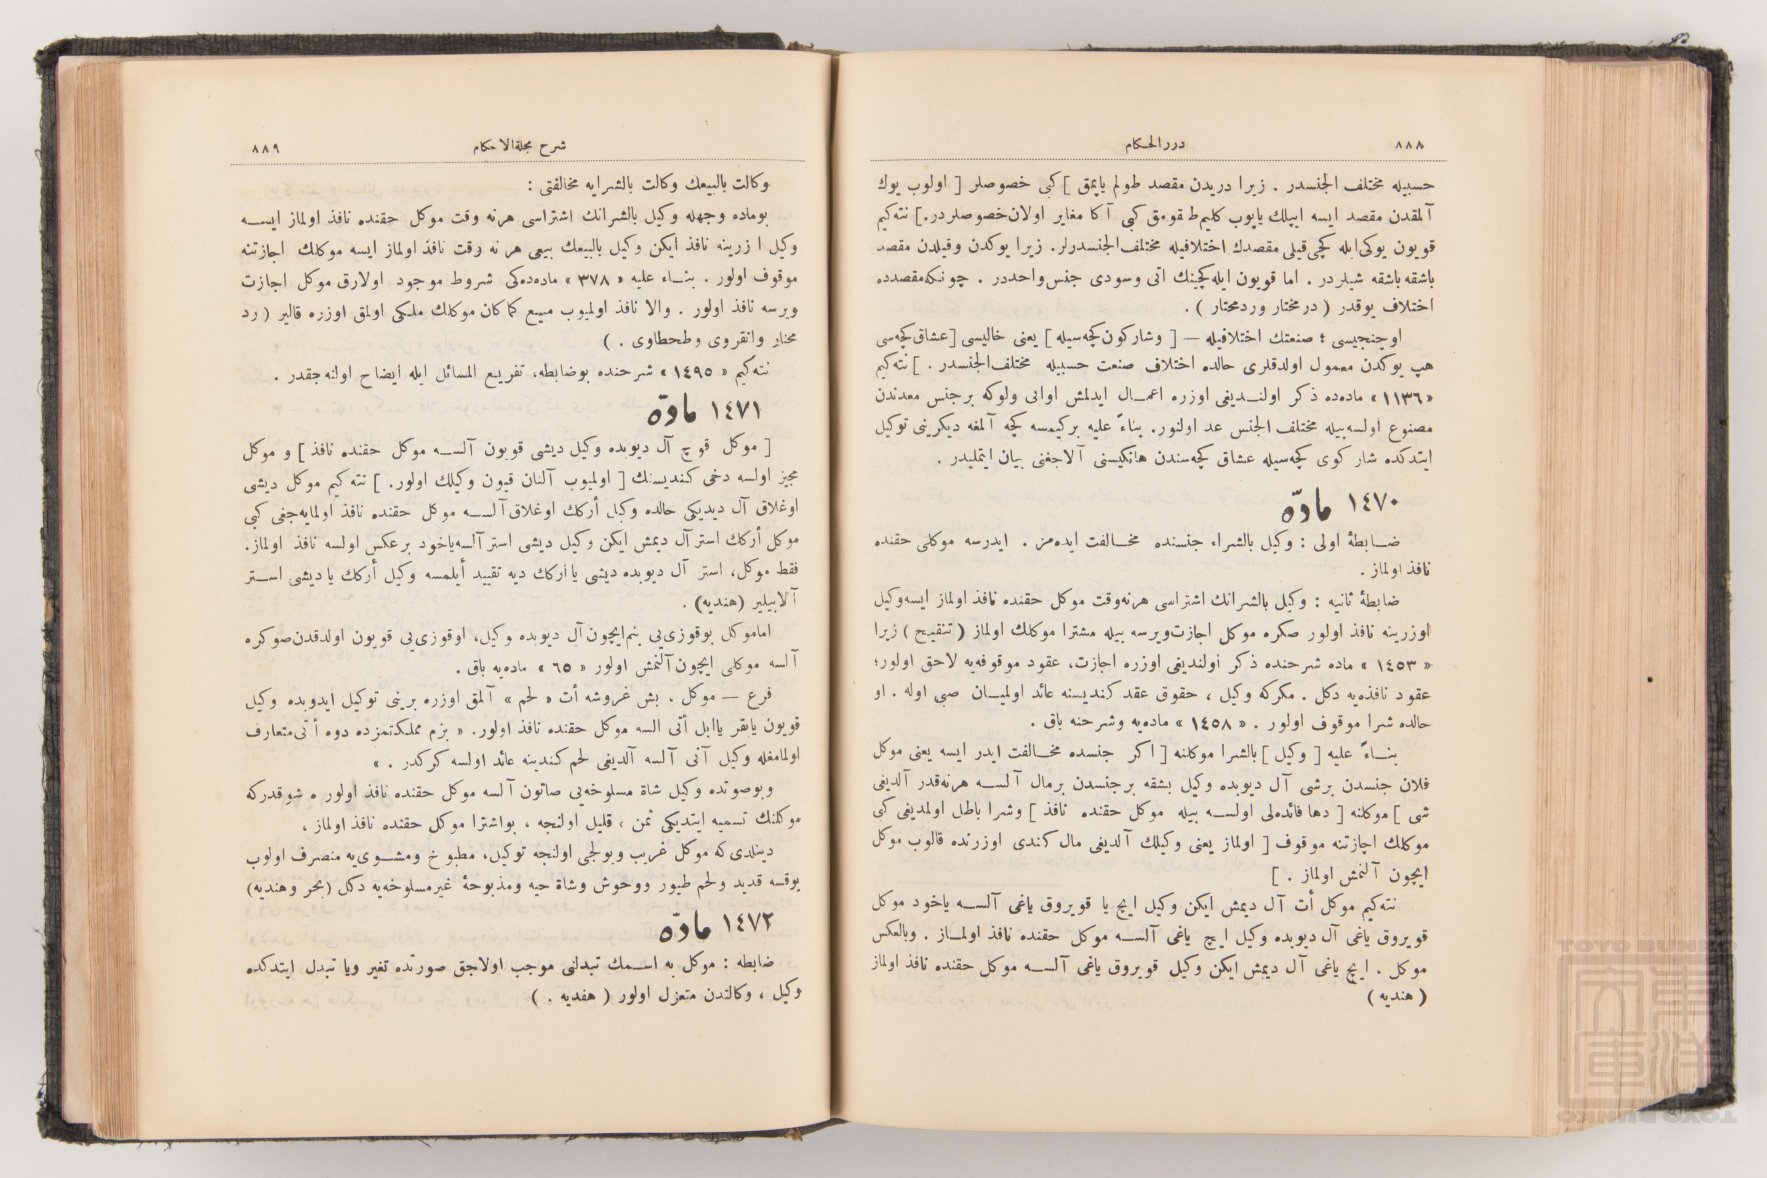 ٨٨٨
دررالحكام
حسبيله مختلف الجنسدر . زيرا دريدن مقصد طولم ياپمق ] كبى خصوصلر [ اولوب يوك
آلمقدن مقصد ايسه ايپلك ياپوب كليم طوقومق كبى آكا مغاير اولان خصوصلردر.] نته كيم
قويون يوكى ايله كچى قيلى مقصدك اختلافيله مختلف الجنسدرلر. زيرا يوكدن وقيلدن مقصد
باشقه باشقه شيلردر . اما قويون ايله كچينك اتى وسودى جنس واحددر . چونكه مقصدده
اختلاف يوقدر ( درمختار وردمحتار ) .
اوچنجيسى ؛ صنعتك اختلافيله — [ وشاركون كچه سيله ] يعنى خاليسى [ عشاق كچه سى
هپ يوكدن معمول اولدقلرى حالده اختلاف صنعت حسبيله مختلف الجنسدر . ] نته كيم
« ١١٣٦ » ماده ده ذكر اولنديغى اوزره اعمال ايدلمش اوانى ولوكه برجنس معدندن
مصنوع اولسه بيله مختلف الجنس عد اولنور. بناءً عليه بركيمسه كچه آلمغه ديكرينى توكيل
ايتدكده شار كوى كچه سيله عشاق كچه سندن هانكيسنى آلاجغنى بيان ايتمليدر .
١٤٧٠ مادّه
ضابطۀ اولى : وكيل بالشراء جنسنده مخالفت ايده مز . ايدرسه موكلى حقنده
نافذ اولماز .
ضابطۀ ثانيه : وكيل بالشرانك اشتراسى هرنه وقت موكل حقنده نافذ اولماز ايسه وكيل
اوزرينه نافذ اولور صكره موكل اجازت ويرسه بيله مشترا موكلك اولماز ( تنقيح ) زيرا
« ١٤٥٣ » ماده شرحنده ذكر اولنديغى اوزره اجازت، عقود موقوفه يه لاحق اولور؛
عقود نافذه يه دكل . مكركه وكيل ، حقوق عقد كنديسنه عائد اولميان صبى اوله . او
حالده شرا موقوف اولور . « ١٤٥٨ » ماده يه وشرحنه باق .
بناءً عليه [ وكيل ] بالشرا موكلنه [ اكر جنسده مخالفت ايدر ايسه يعنى موكل
فلان جنسدن برشى آل ديوبده وكيل بشقه برجنسدن برمال آلسه هرنه قدر آلديغى
شى ] موكلنه [ دها فائده لى اولسه بيله موكل حقنده نافذ ] وشرا باطل اولمديغى كى
موكلك اجازتنه موقوف [ اولماز يعنى وكيلك آلديغى مال كندى اوزرنده قالوب موكل
ايچون آلنمش اولماز . ]
نته كيم موكل أت آل ديمش ايكن وكيل ايچ يا قويروق ياغى آلسه ياخود موكل
قويروق ياغى آل ديوبده وكيل ايچ ياغى آلسه موكل حقنده نافذ اولماز . وبالعكس
موكل . ايچ ياغى آل ديمش ايكن وكيل قويروق ياغى آلسه موكل حقنده نافذ اولماز
( هنديه )
شرح مجلة الاحكام
٨٨٩
وكالت بالبيعك وكالت بالشرايه مخالفتى :
بوماده وجهله وكيل بالشرانك اشتراسى هرنه وقت موكل حقنده نافذ اولماز ايسه
وكيل ا زرينه نافذ ايكن وكيل بالبيعك بيعى هر نه وقت نافذ اولماز ايسه موكلك اجازتنه
موقوف اولور . بناء عليه « ٣٧٨ » ماده ده كى شروط موجود اولارق موكل اجازت
ويرسه نافذ اولور . والا نافذ اولميوب مبيع كماكان موكلك ملكى اولمق اوزره قالير ( رد
محتار وانقروى وطحطاوى . )
نته كيم « ١٤٩٥ » شرحنده بوضابطه، تفريع المسائل ايله ايضاح اولنه جقدر .
١٤٧١ مادّه
[ موكل قوچ آل ديوبده وكيل ديشى قويون آلسه موكل حقنده نافذ ] و موكل
مجيز اولسه دخى كنديسنك [ اولميوب آلنان قيون وكيلك اولور. ] نته كيم موكل ديشى
اوغلاق آل ديديكى حالده وكيل أركك اوغلاق آلسه موكل حقنده نافذ اولمايه جغى كبى
موكل أركك استر آل ديمش ايكن وكيل ديشى استر آلسه ياخود برعكس اولسه نافذ اولماز.
فقط موكل، استر آل ديوبده ديشى يا أركك ديه تقييد أيلمسه وكيل أركك يا ديشى استر
آلابيلير (هنديه) .
اماموكل بوقوزى يى بنم ايچون آل ديوبده وكيل، اوقوزى يى قويون اولدقدن صوكره
آلسه موكلى ايچون آلنمش اولور « ٦٥ » ماده يه باق .
فرع — موكل . بش غروشه أت « لحم » آلمق اوزره برينى توكيل ايدوبده وكيل
قويون يابقر ياابل أتى السه موكل حقنده نافذ اولور. « بزم مملكتمزده دوه أتى متعارف
اولمامغله وكيل آنى آلسه آلديغى لحم كندينه عائد اولسه كركدر . »
وبوصوتده وكيل شاة مسلوخه يى صاتون آلسه موكل حقنده نافذ اولور ه شوقدركه
موكلنك تسميه ايتديكى ثمن ، قليل اولنجه ، بواشترا موكل حقنده نافذ اولماز .
دينلدى كه موكل غريب وبولجى اولنجه توكيل، مطبوخ ومشوى يه منصرف اولوب
يوقسه قديد ولحم طيور ووحوش وشاة حيه ومذبوحۀ غيرمسلوخه يه دكل (بحر وهنديه)
١٤٧٢ مادّه
ضابطه : موكل به اسمك تبدلنى موجب اولاجق صورتده تغير ويا تبدل ايتدكده
وكيل ، وكالتدن متعزل اولور ( هفديه . )
TOYO BUNKO